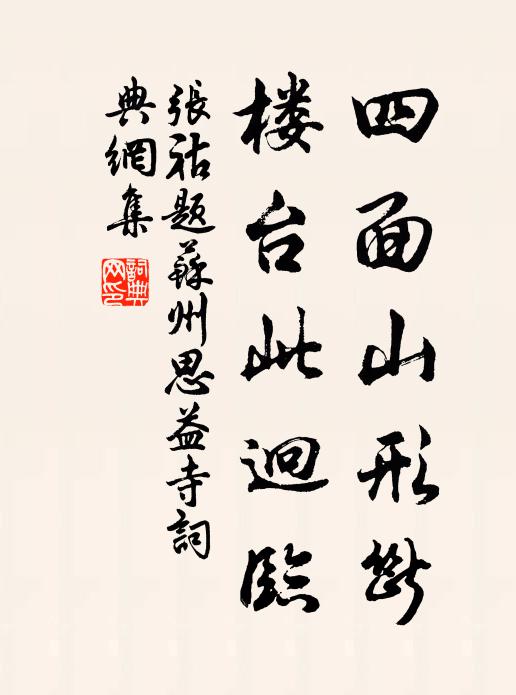 四面山形断
楼台此迥臨
張祜題蘇州思益寺詞
典網集
詞典网印